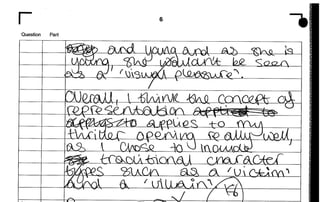 6
Question Part
and young and as she is
young, she wouldn't be seen
as a 'visual pleasure'.
Overall, I think the concept of
representation
applies to my
thriller opening really well,
as I chose to include
traditional character
types such as a 'victim'
and a 'villain'.